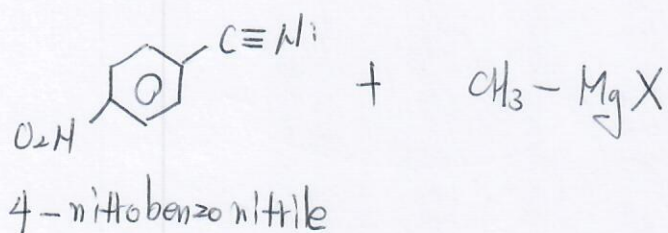 C≡N:
+ CH3 - MgX
O2N
4-nitrobenzonitrile